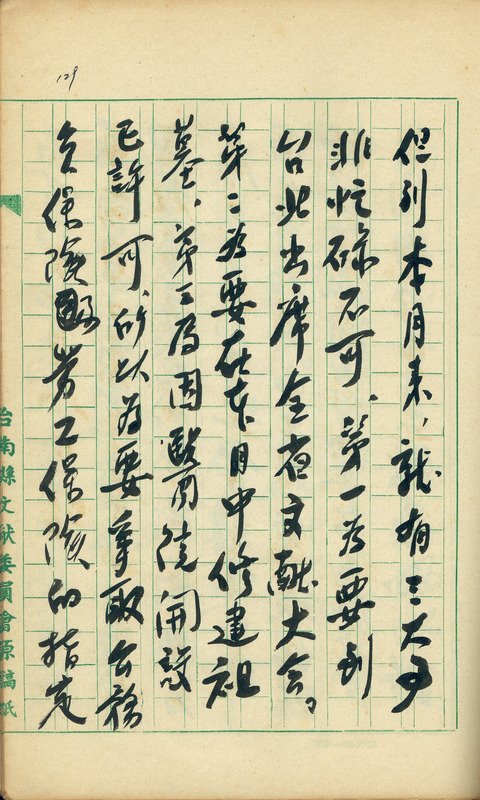 129
但到本月末，就有三大事
非忙碌不可、第一為要到
台北出席全省文献大会。
第二為要在本月中修建祖
墓、第三為因醫院開設
已許可、所以為要爭取公務
員保險及勞工保險的指定
台南縣文献委員會原稿紙